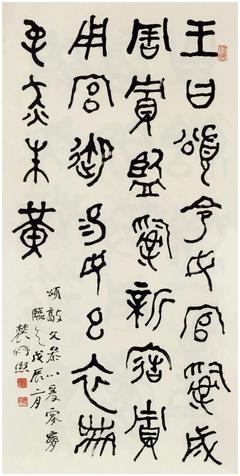 王曰頌令女官𤔲成
周貯監𤔲新造貯
用宮御易女玄衣黹
屯赤朱黃
頌敦文
臨之戊辰二月